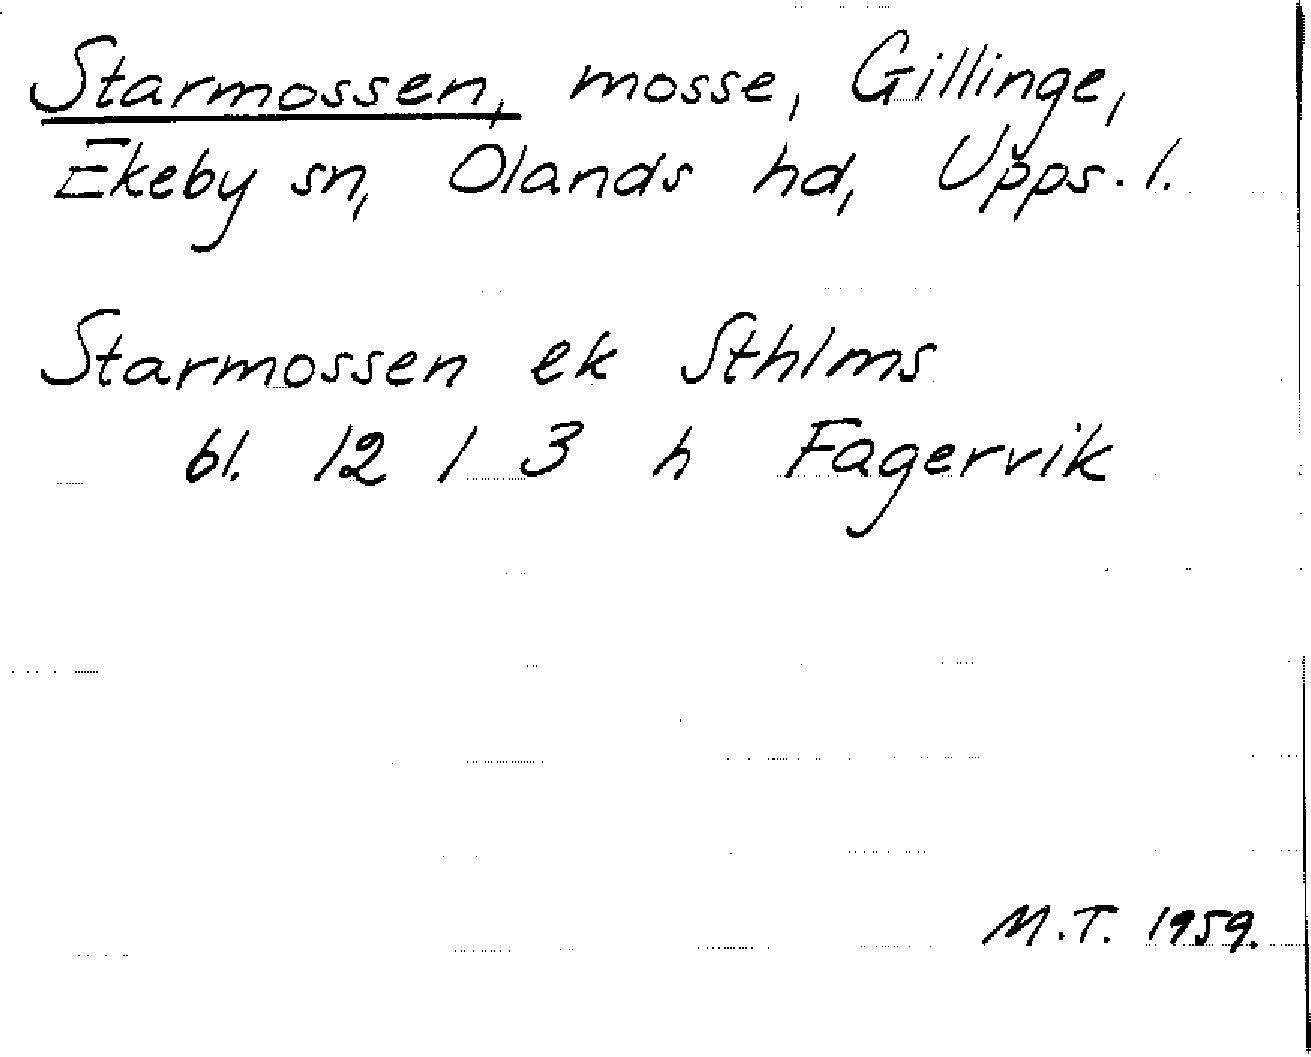 Starmossen, mosse, Gillinge,
Ekeby sn, Olands hd, Upps. l.
Starmossen ek Sthlms
bl. 12 I 3 h Fagervik
M.T. 1959.